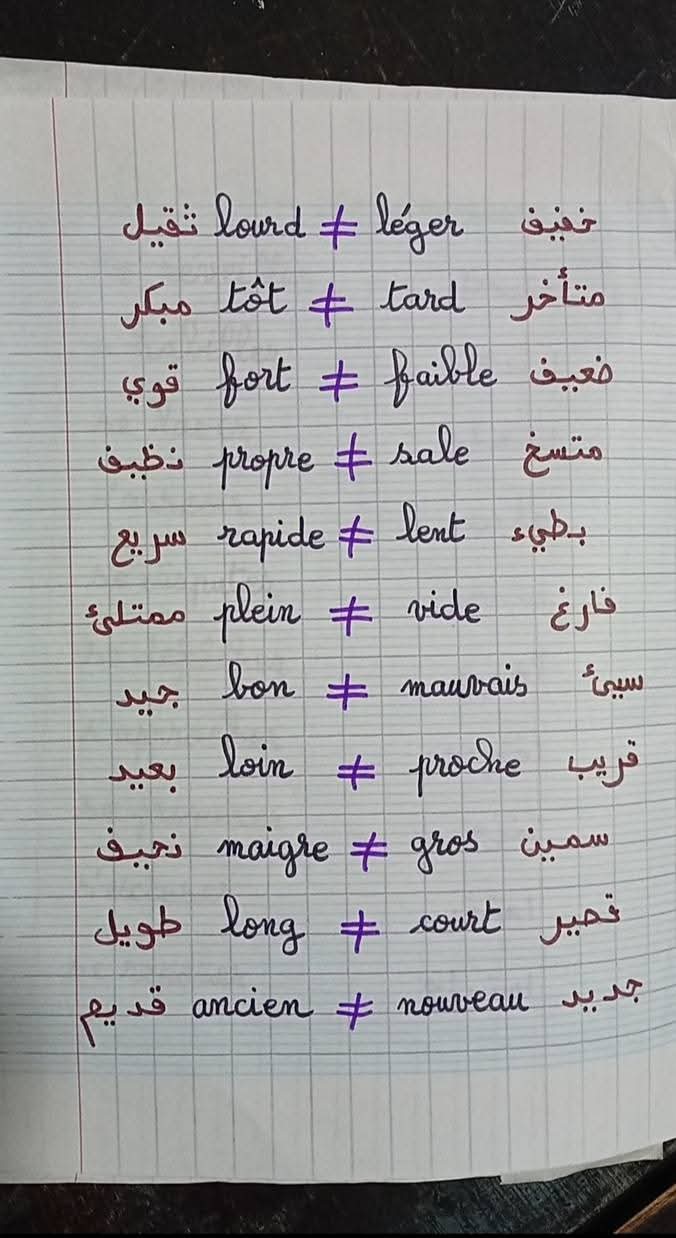 ثقيل lourd ≠ léger خفيف
مبكر tôt ≠ tard متأخر
قوي fort ≠ faible ضعيف
نظيف propre ≠ sale متسخ
سريع rapide ≠ lent بطيء
ممتلئ plein ≠ vide فارغ
جيد bon ≠ mauvais سيئ
بعيد loin ≠ proche قريب
نحيف maigre ≠ gros سمين
طويل long ≠ court قصير
قديم ancien ≠ nouveau جديد